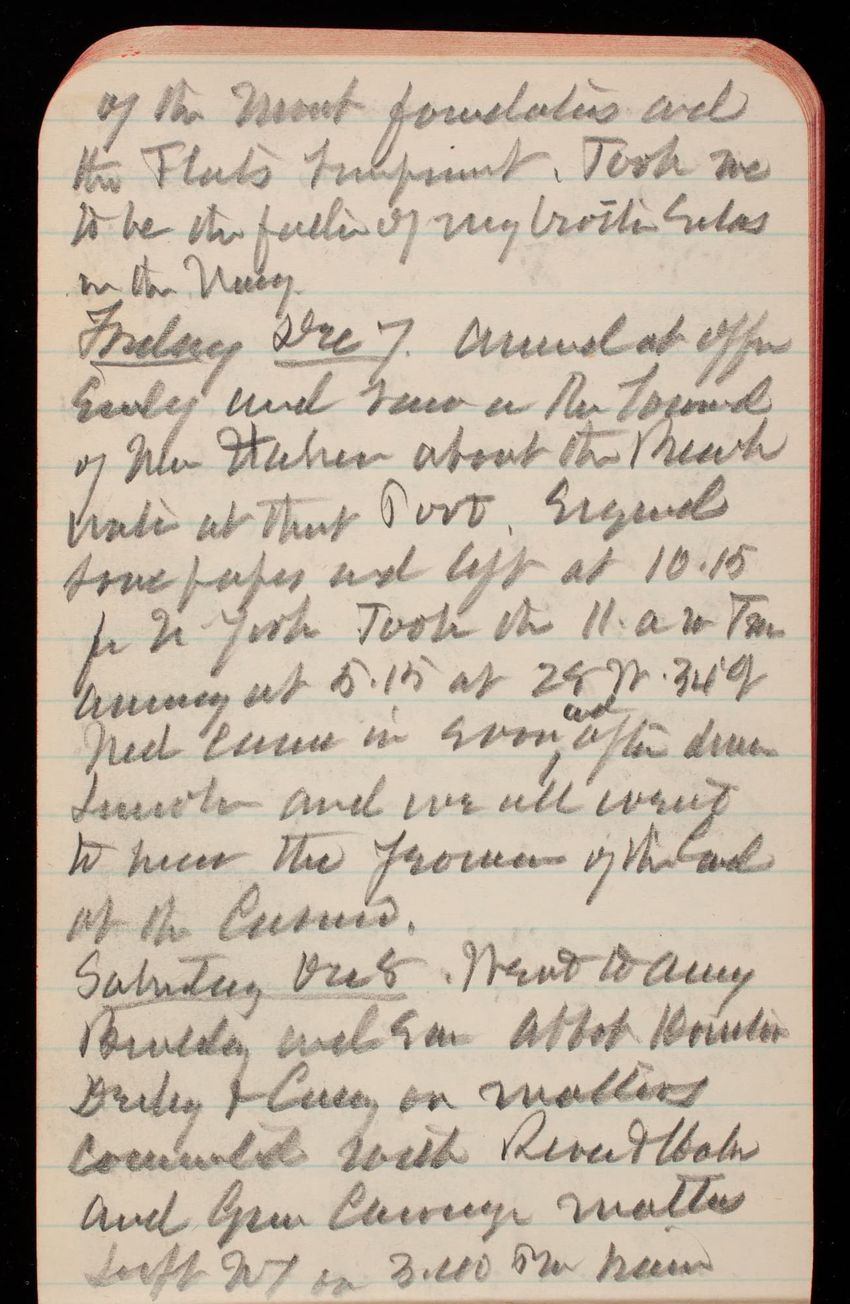 of the Mount foundations and
the Flats Imprint. Took me
to be the father of my brother Silas
in the Navy.
Friday Dec 7. Arrived at office
Early and saw
of New Haven about the Break
water at that Port. Signed
some papers and left at 10.15
for N York Took the 11. a m Train
arriving at 5.15 at 28 W. 34th
Ned came in Soon, and after dinner
and we all went
to hear the of the
at the Casino.
Saturday Dec 8. Went to Army
Building and saw Abbot
Derby & Casey on matters
connected with River & Harbor
and Gun Carriage matters
Left NY on 3.40 PM train